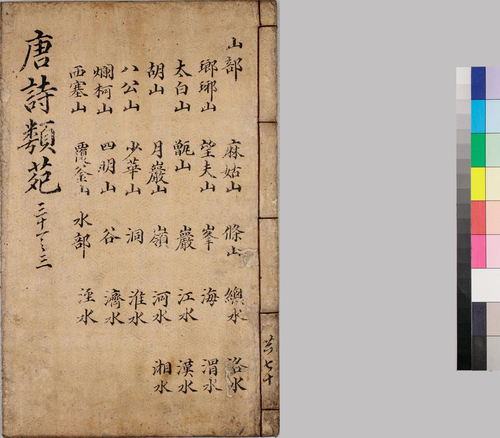 山部 麻姑山 條山 總水 洛水
瑯琊山 望夫山 峯 海 渭水
太白山 甑山 巖 江水 漢水
胡山 月巖山 嶺 河水 湘水
八公山 少華山 洞 淮水
爛柯山 四明山 谷 濟水
西塞山 覆釜山 水部 涇水
唐詩類苑
共七十